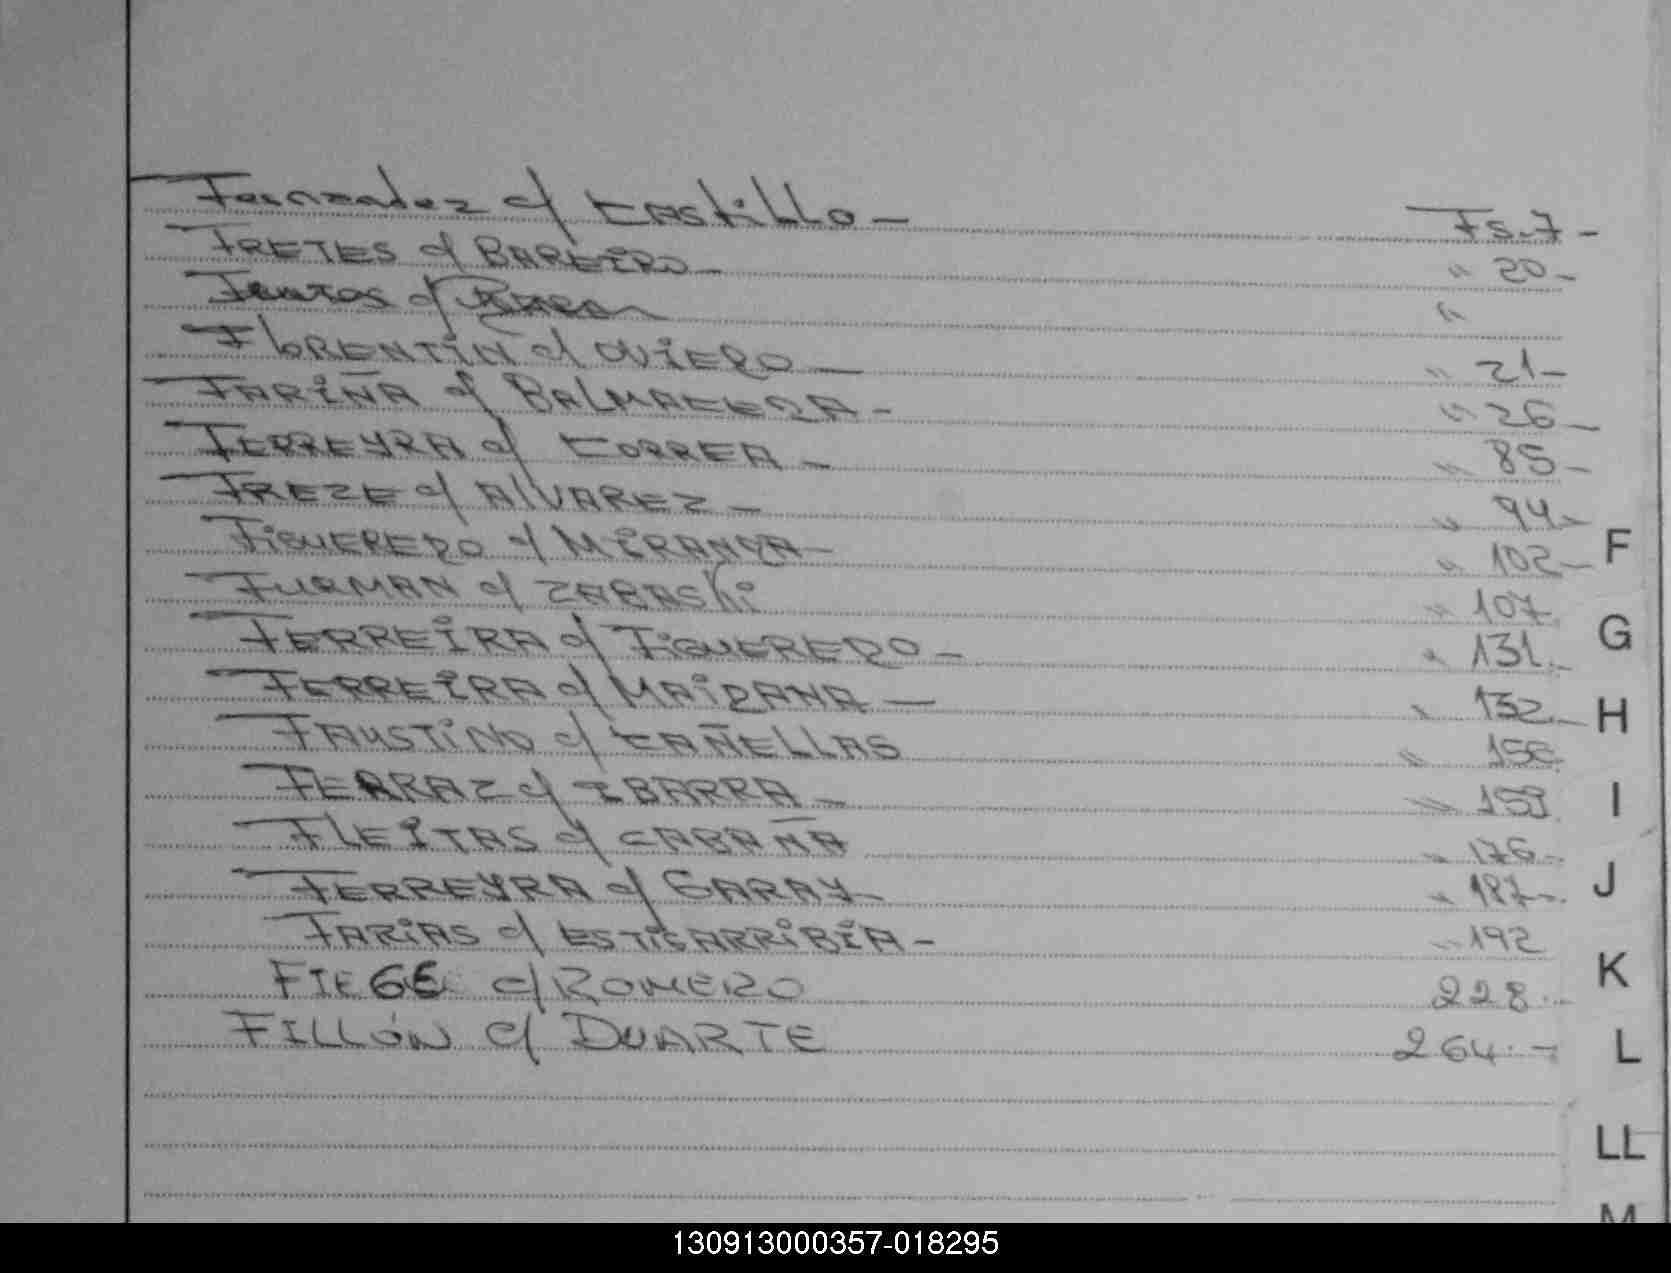 Fernandez c/ Castillo – Fs. 7 –
FRETES c/ BAREIRO – " 20 –
c/ "
FLORENTIN c/ OVIEDO – " 21 –
FARIÑA c/ BALMACEDA – " 26 –
FERREYRA c/ CORREA – " 85 –
FREZE c/ ALVAREZ – " 94 –
FIGUEREDO c/ MIRANDA – " 102 –
FURMAN c/ ZARASKI " 107
FERREIRA c/ FIGUEREDO – " 131 –
FERREIRA c/ MAIDANA – " 132 –
FAUSTINO c/ CAÑELLAS " 156
FERRAZ c/ IBARRA – " 159
FLEITAS c/ CABAÑA " 176 –
FERREYRA c/ GARAY – " 187 –
FARIAS c/ ESTIGARRIBIA – " 192
FIEGE c/ ROMERO 228 –
FILLÓN c/ DUARTE 264 –
F
G
H
I
J
K
L
LL
M
130913000357-018295